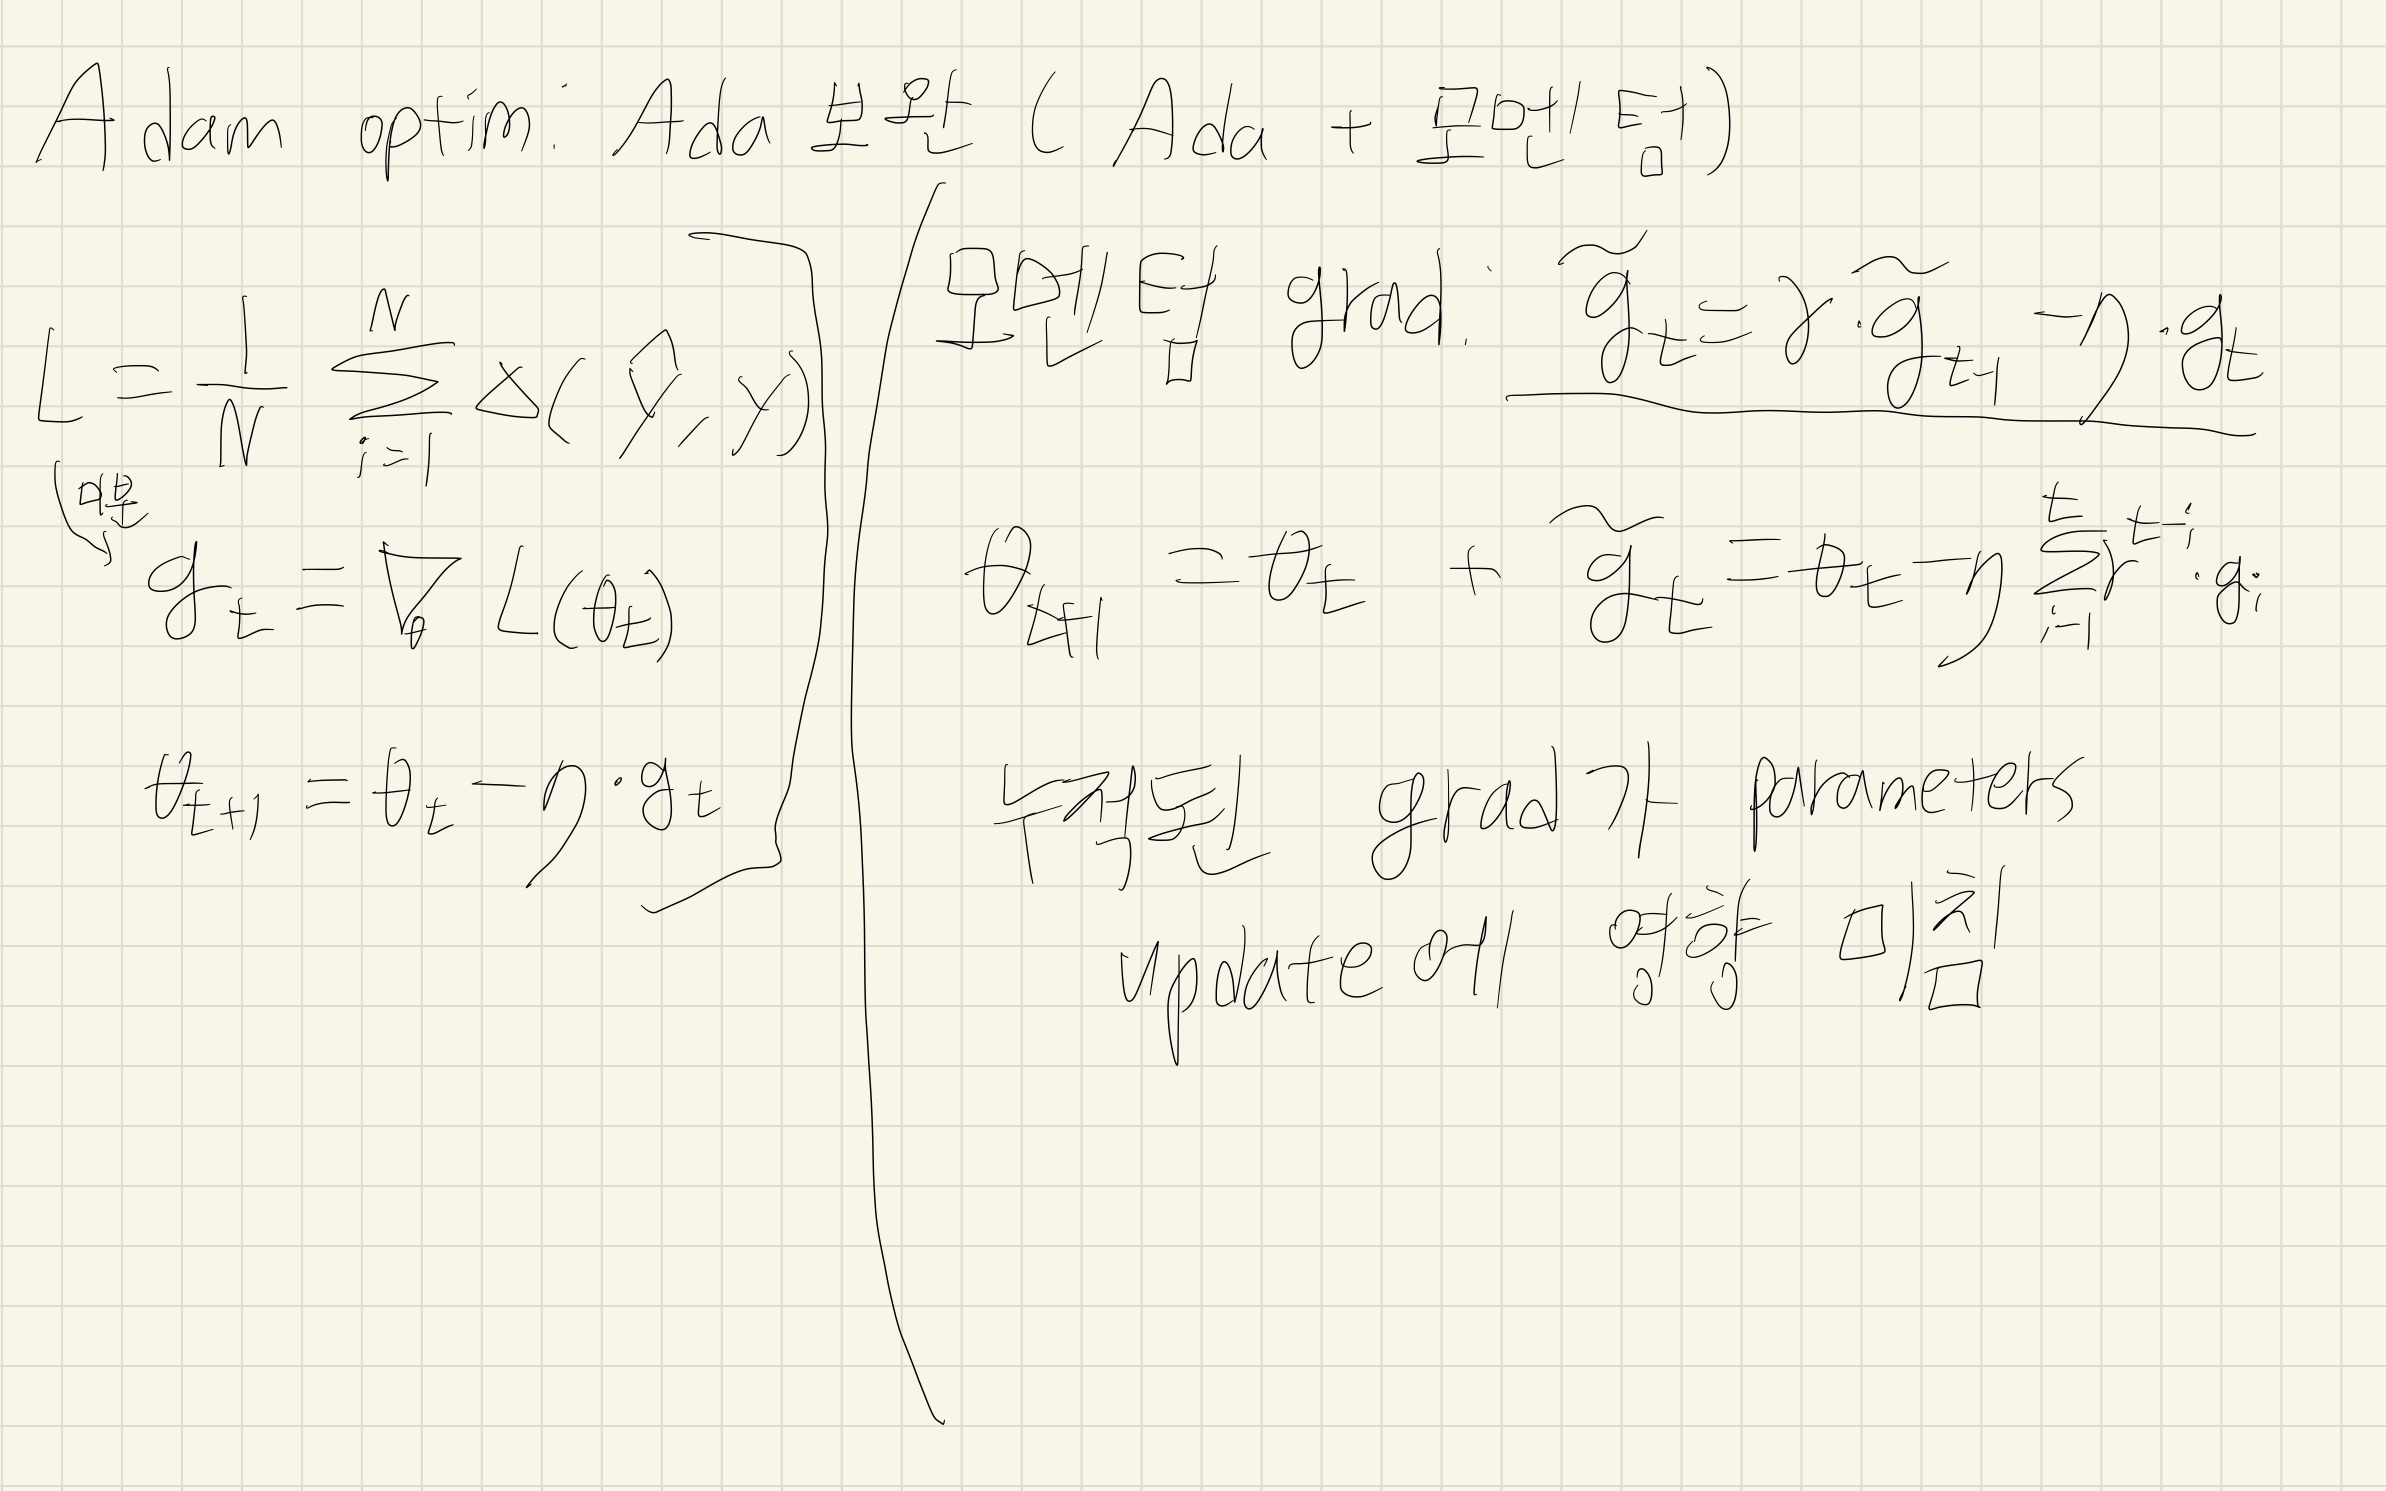 Adam optim: Ada 보완 (Ada + 모멘텀)
L = 1/N Σ_{i=1}^{N} Δ(ŷ, y)
미분
g_t = ∇_θ L(θ_t)
θ_{t+1} = θ_t - η·g_t
모멘텀 grad: g̃_t = γ·g̃_{t-1} - η·g_t
θ_{t+1} = θ_t + g̃_t = θ_t - η Σ_{i=1}^{t} γ^{t-i}·g_i
누적된 grad가 parameters
update에 영향 미침